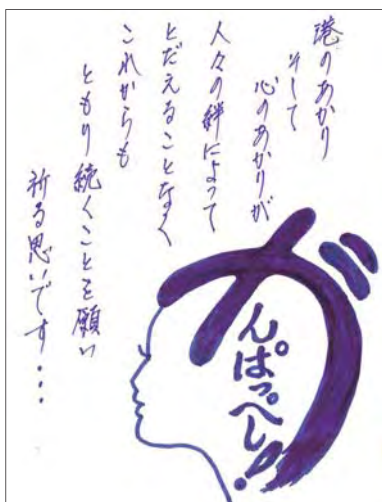 港のあかり
そして
心のあかりが
人々の絆によって
とだえることなく
これからも
ともり続くことを願い
祈る思いです・・・
がんぱっぺし!